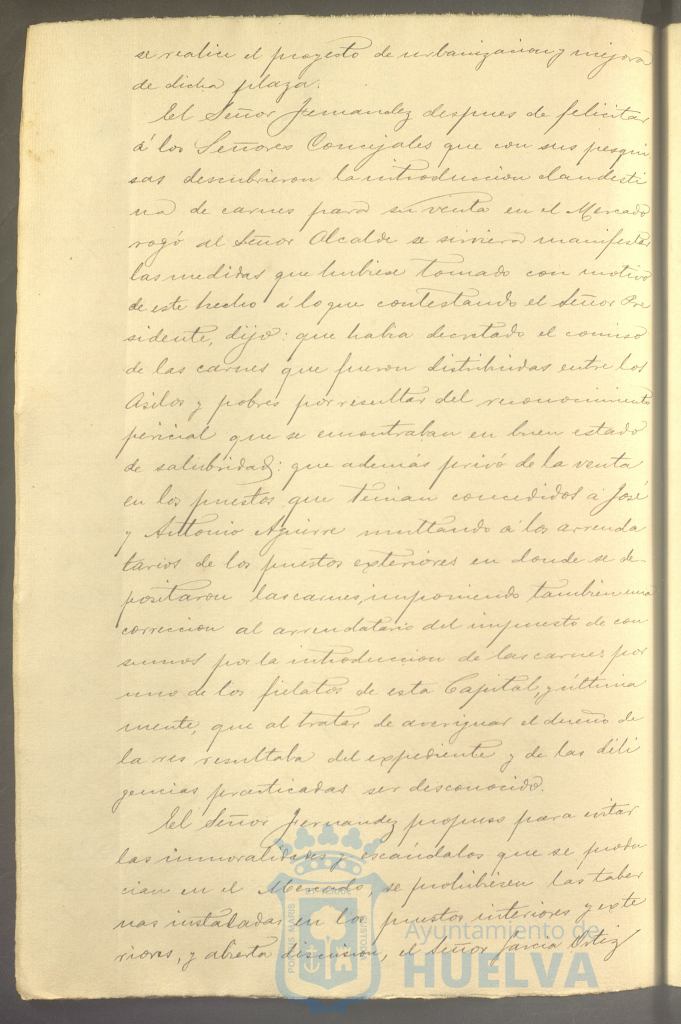 se realice el proyecto de urbanizacion y mejora
de dicha plaza.
El Señor Fernandez despues de felicitar
á los Señores Concejales que con sus pesqui
sas descubrieron la introduccion clandesti
na de carnes para su venta en el Mercado
rogó al Señor Alcalde se sirviera manifestar
las medidas que hubiese tomado con motivo
de este hecho á lo que contestando el Señor Pre
sidente, dijo: que habia decretado el comiso
de las carnes que fueron distribuidas entre los
Asilos y pobres por resultar del reconocimiento
pericial que se encontraban en buen estado
de salubridad: que además privó de la venta
en los puestos que tenian concedidos á José
y Antonio Aguirre multando á los arrenda
tarios de los puestos exteriores en donde se de-
positaron las carnes, imponiendo tambien una
correccion al arrendatario del impuesto de con
sumos por la introduccion de las carnes por
uno de los fielatos de esta Capital, y ultima
mente, que al tratar de averiguar el dueño de
la res resultaba del expediente y de las dili
gencias practicadas ser desconocido.
El Señor Fernandez propuso para evitar
las inmoralidades y escándalos que se produ
cian en el Mercado, se prohibiesen las taber
nas instaladas en los puestos interiores y exte
riores, y abierta discusion, el Señor García Ortiz
PORTUS MARIS
Ayuntamiento de
HUELVA